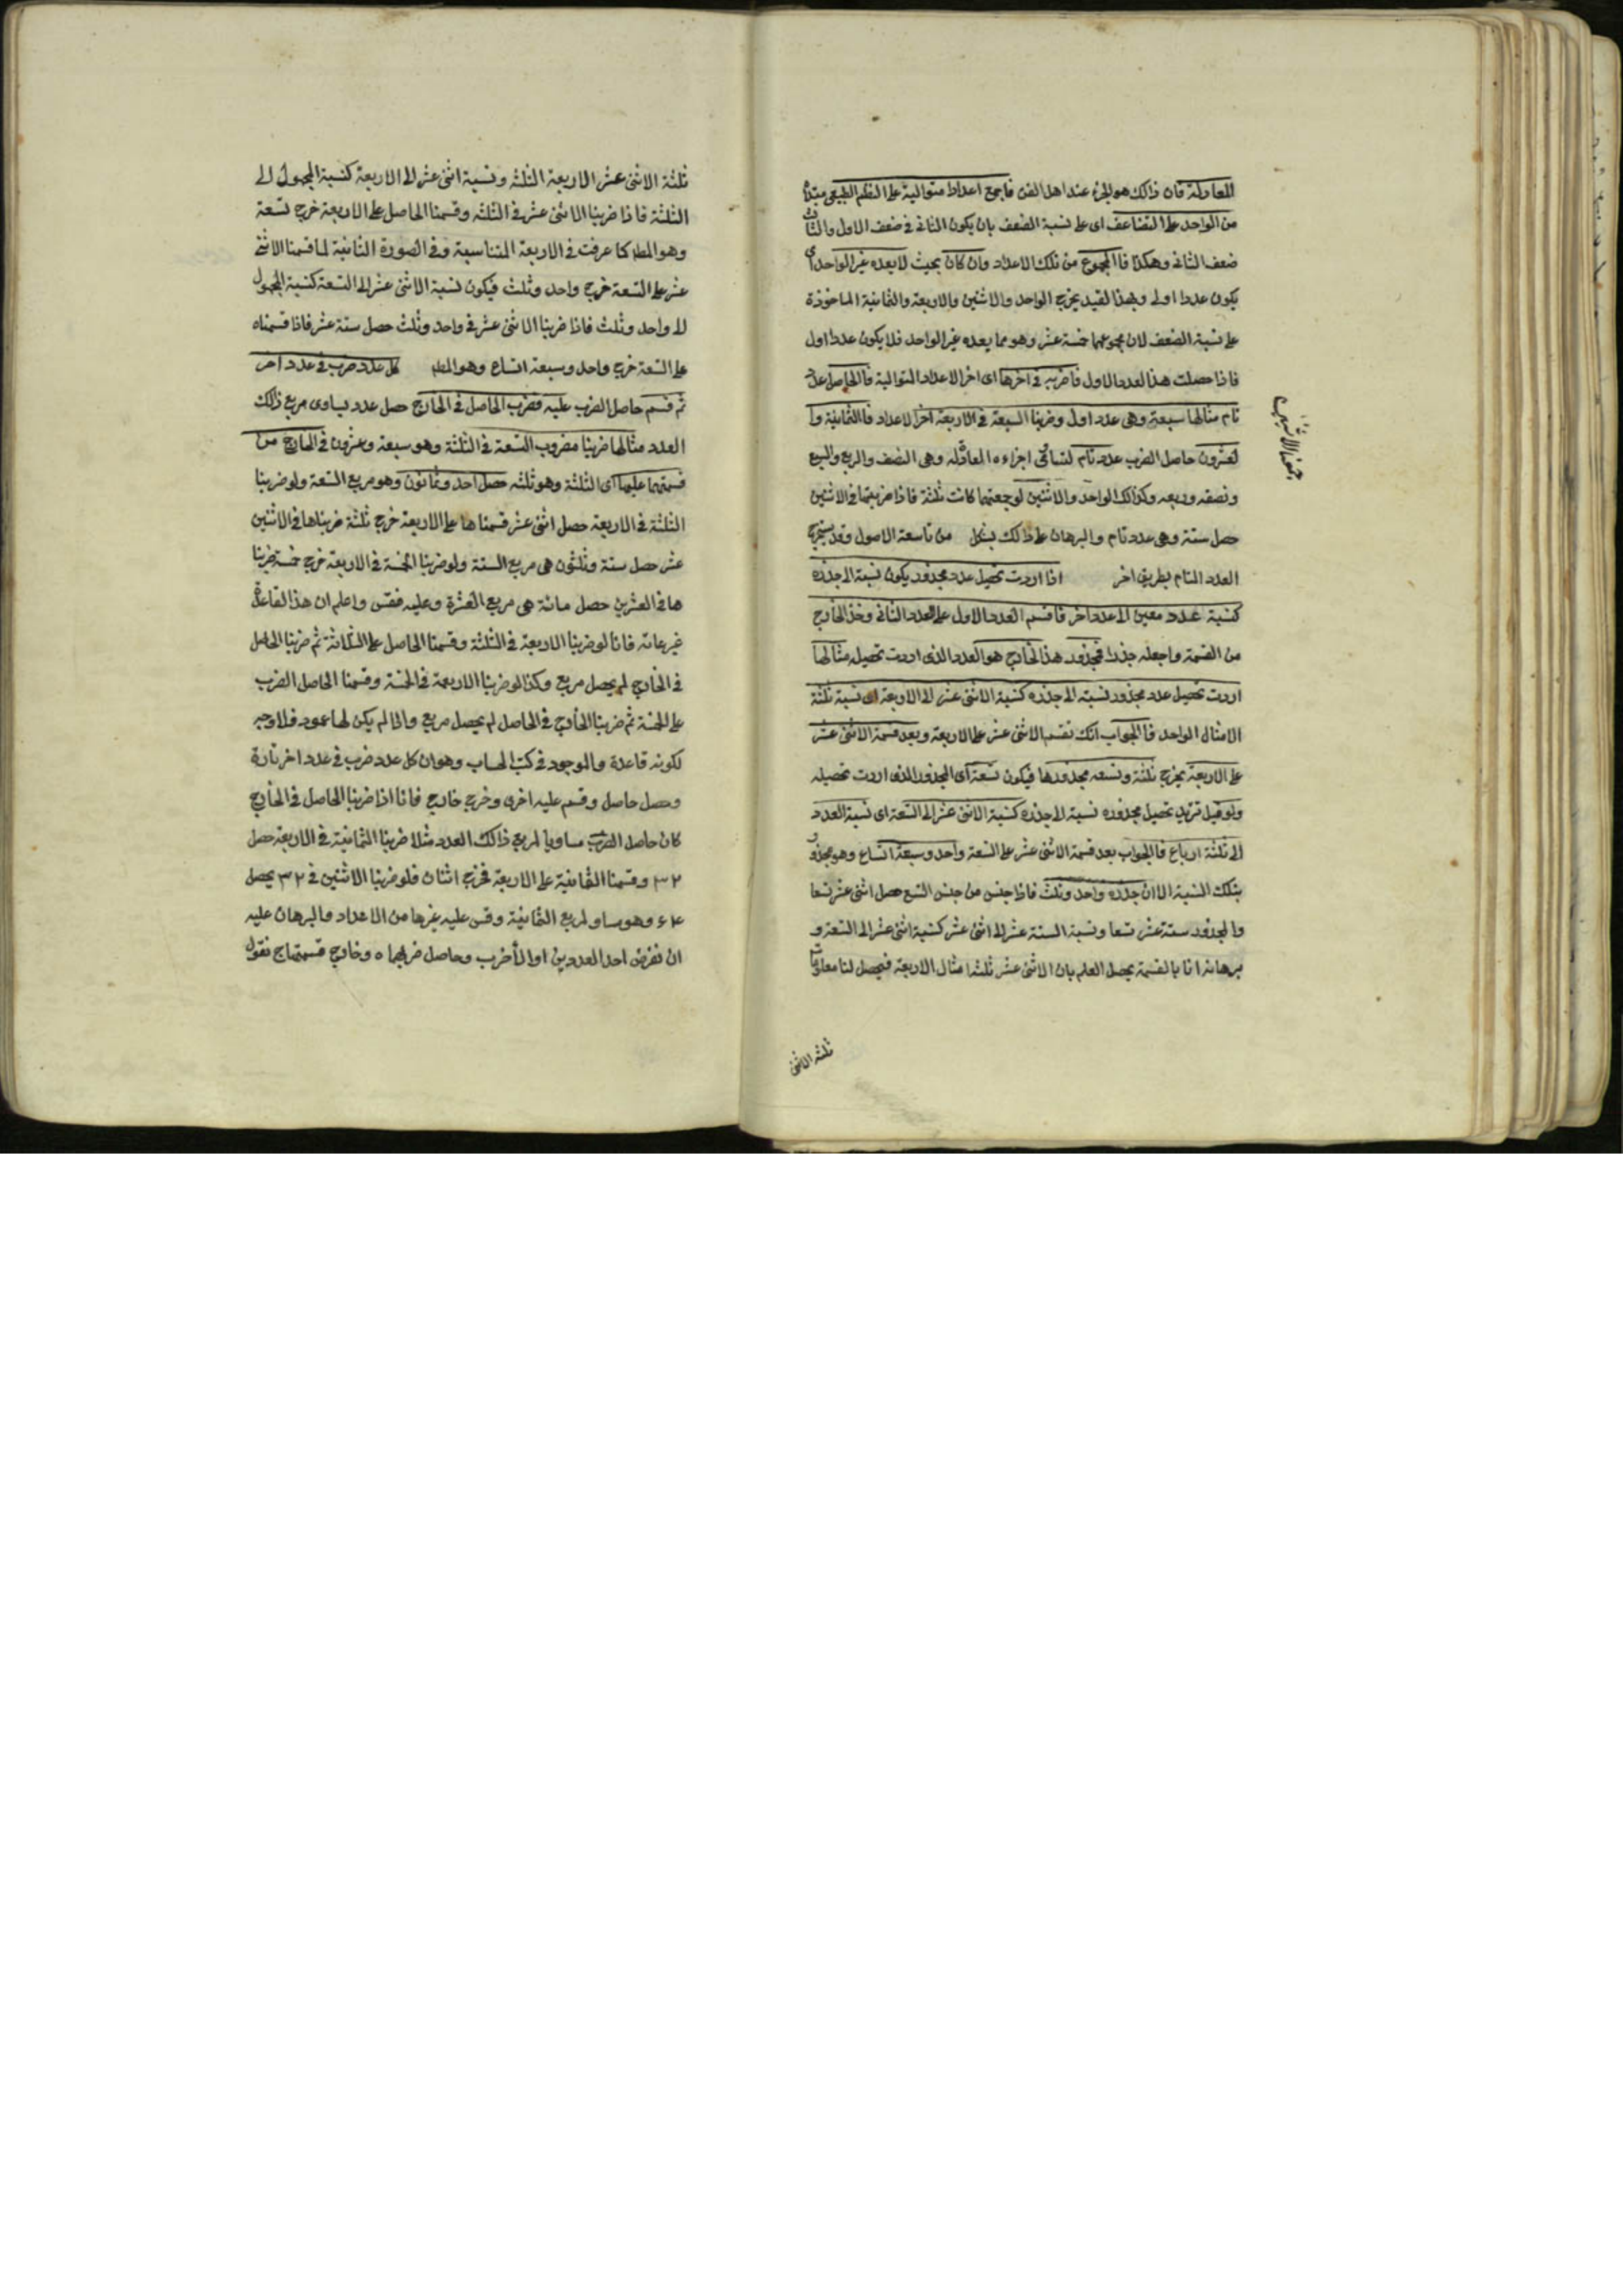 المعادلة فان ذالك هو الجزء عند اهل الفن فاجمع اعدادا متوالية على النظم الطبيعى مبتدأ
من الواحد على التضاعف اى على نسبة الضعف بان يكون الثانى ضعف الاول والثالث
ضعف الثانى وهكذا فاالمجموع من تلك الاعداد وان كان بحيث لا يعده غير الواحد اى
يكون عددا اولى وبهذا القيد يخرج الواحد والاثنين والاربعة والثمانية الماخوذة
على نسبة الضعف لان مجموعها خمسة عشر وهو مما يعده غير الواحد فلا يكون عددا اول
فاذا حصلت هذا لعدد الاول فاضربه فى اخرها اى اخر الاعداد المتوالية فاالحاصل عدد
تام مثالها سبعة وهى عدد اول وضربنا السبعة فى الاربعة اخر الاعداد فاالثمانية وا
لعشرون حاصل الضرب عدد تام لتساوى اجزاءه المعادله وهى النصف والربع والسبع
ونصفه وربعه وكذالك الواحد والاثنين لو جمعتهما كانت ثلثة فاذا ضربتها فى الاثنين
حصل ستة وهى عدد تام والبرهان على ذالك بشكل من تاسعة الاصول وقد يستخرج
العدد التام بطريق اخر اذا اردت تحصيل عدد مجذور يكون نسبة الى جذره
كنسبة عدد معين الى عدد اخر فاقسم العدد الاول على العدد الثانى وخذ الخارج
من القسمة واجعله جذرا فمجذور هذا لخارج هو العدد الذى اردت تحصيله مثالها
اردت تحصيل عدد مجذور نسبته الى جذره كنسبة الاثنى عشر الى الاربعة اى نسبة ثلثة
الامثال الواحد فاالجواب انك تقسم الاثنى عشر على الاربعة وبعد قسمة الاثنى عشر
على الاربعة يخرج ثلثة وتسعه مجذورها فيكون تسعة اى المجذور الذى اردت تحصيله
ولو قيل تريد تحصيل مجذوره نسبة الى جذره كنسبة الاثنى عشر الى التسعة اى نسبة العدد
الى ثلثة ارباع فاالجواب بعد قسمة الاثنى عشر على التسعة واحد وسبعة اتساع وهو مجذور
بتلك النسبة الا ان جذره واحد وثلث فاذا جنس من جنس التسع حصل اثنى عشر تسعا
والمجذور ستة عشر تسعا ونسبة الستة عشر الى اثنى عشر كنسبة اثنى عشر الى التسعة و
برهانه انا بالقسمة يحصل العلم بان الاثنى عشر ثلثة امثال الاربعة فيحصل لنا معلومات
ثلثة الاثنى
ثلثة الاثنى عشر الاربعة الثلثه ونسبة اثنى عشر الى الاربعة كنسبة المجهول الى
الثلثة فاذا ضربنا الاثنى عشر فى الثلثه وقسمنا الحاصل على الاربعة خرج تسعة
وهو المطلـ كما عرفت فى الاربعة المتناسبة وفى الصورة الثانية لما قسمنا الاثنى
عشر على التسعة خرج واحد وثلث فيكون نسبة الاثنى عشر الى التسعة كنسبة المجهول
الى واحد وثلث فاذا ضربنا الاثنى عشر فى واحد وثلث حصل ستة عشر فاذا قسمناه
على التسعة خرج واحد وسبعة اتساع وهو المطلـ كل عدد ضرب فى عدد اخر
ثم قسم حاصل الضرب عليه فضرب الحاصل فى الخارج حصل عدد يساوى مربع ذالك
العدد مثالها ضربنا مضروب التسعة فى الثلثة وهو سبعة وعشرون فى الخارج من
قسمتهما عليها اى الثلثة وهو ثلثه حصل احد وثمانون وهو مربع التسعة ولو ضربنا
الثلثة فى الاربعة حصل اثنى عشر قسمنا ها على الاربعة خرج ثلثة ضربناها فى الاثنين
عشر حصل ستة وثلثون هى مربع الستة ولو ضربنا الخمسة فى الاربعة خرج خمسة ضربنا
ها فى العشرين حصل مائة هى مربع العشرة وعليه فقس واعلم ان هذا القاعدة
غير عامة فانا لو ضربنا الاربعة فى الثلثة وقسمنا الحاصل على الثلاثة ثم ضربنا الحاصل
فى الخارج لم يحصل مربع وكذا لو ضربنا الاربعة فى الخمسة وقسمنا الحاصل الضرب
على الخمسة ثم ضربنا الخارج فى الحاصل لم يحصل مربع واذا لم يكن لها عموم فلا وجه
لكونه قاعدة والموجود فى كتب الحساب وهو ان كل عدد ضرب فى عدد اخر تارة
وحصل حاصل وقسم عليه اخرى وخرج خارج فانا اذا ضربنا الحاصل فى الخارج
كان حاصل الضرب مساويا لمربع ذالك العدد مثلا ضربنا الثمانية فى الاربعة حصل
٣٢ وقسمنا الثمانية على الاربعة فخرج اثنان فلو ضربنا الاثنين فى ٣٢ يحصل
٦٤ وهو مساو لمربع الثمانية وقس عليه غيرها من الاعداد والبرهان عليه
ان نفرض احد العددين ا والأخر ب وحاصل ضربهما ه وخارج قسمتهما ج نقول